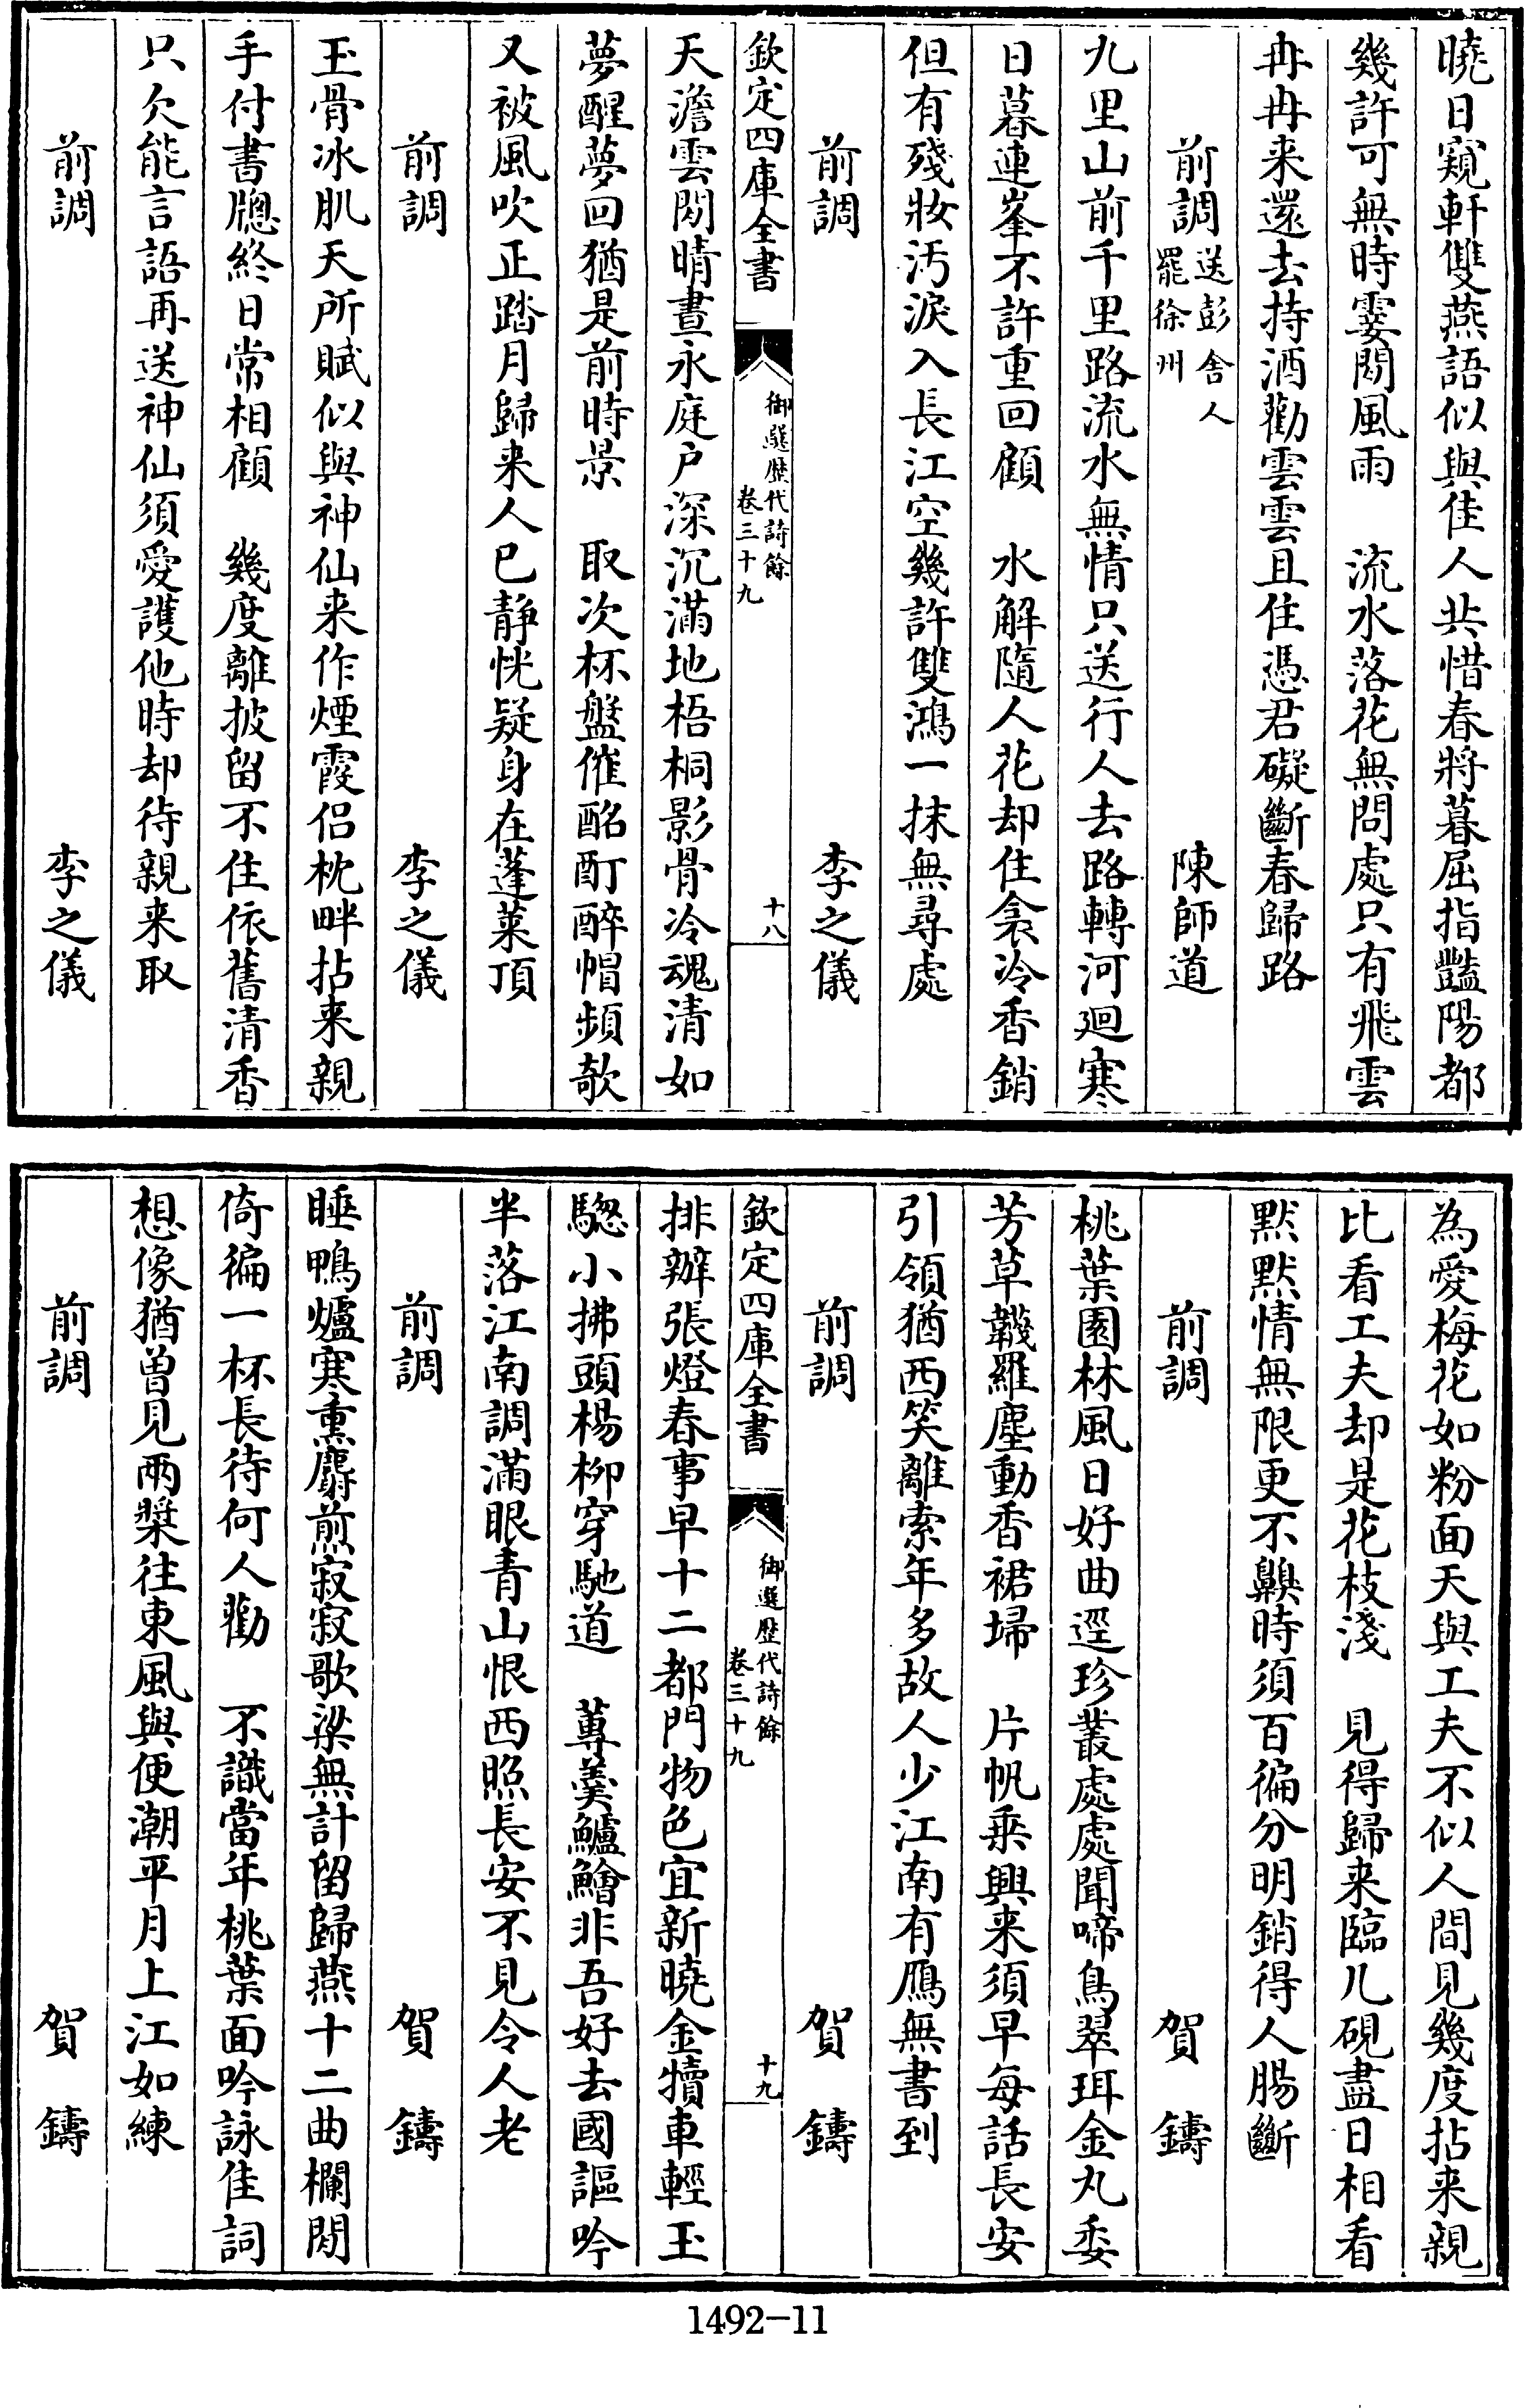 曉日窺軒雙燕語似與佳人共惜春將暮屈指豔陽都
幾許可無時霎閒風雨　流水落花無問處只有飛雲
冉冉来還去持酒勸雲雲且住憑君礙斷春歸路
前調送彭舍人罷徐州　陳師道
九里山前千里路流水無情只送行人去路轉河迴寒
日暮連峯不許重回顧　水解隨人花却住衾冷香銷
但有殘妝汚淚入長江空幾許雙鴻一抹無尋處
前調　李之儀
欽定四庫全書　御選歴代詩餘卷三十九　十八
天澹雲閒晴晝永庭户深沉滿地梧桐影骨冷魂清如
夢醒夢回猶是前時景　取次杯盤催酩酊醉帽頻欹
又被風吹正踏月歸来人已静恍疑身在蓬萊頂
前調　李之儀
玉骨冰肌天所賦似與神仙来作煙霞侣枕畔拈来親
手付書牕終日常相顧　幾度離披留不住依舊清香
只欠能言語再送神仙須愛護他時却待親来取
前調　李之儀
為愛梅花如粉面天與工夫不似人間見幾度拈来親
比看工夫却是花枝淺　見得歸来臨几硯盡日相看
默默情無限更不齅時須百徧分明銷得人腸斷
前調　賀鑄
桃葉園林風日好曲逕珍叢處處聞啼鳥翠珥金丸委
芳草韈羅塵動香裙埽　片帆乗興来須早每話長安
引領猶西笑離索年多故人少江南有鴈無書到
前調　賀鑄
欽定四庫全書　御選歴代詩餘卷三十九　十九
排辦張燈春事早十二都門物色宜新曉金犢車輕玉
驄小拂頭楊柳穿馳道　蓴羮鱸鱠非吾好去國謳吟
半落江南調滿眼青山恨西照長安不見令人老
前調　賀鑄
睡鴨爐寒熏麝煎寂寂歌梁無計留歸燕十二曲欄閒
倚徧一杯長待何人勸　不識當年桃葉面吟詠佳詞
想像猶曽見兩槳往東風與便潮平月上江如練
前調　賀鑄
1492-11